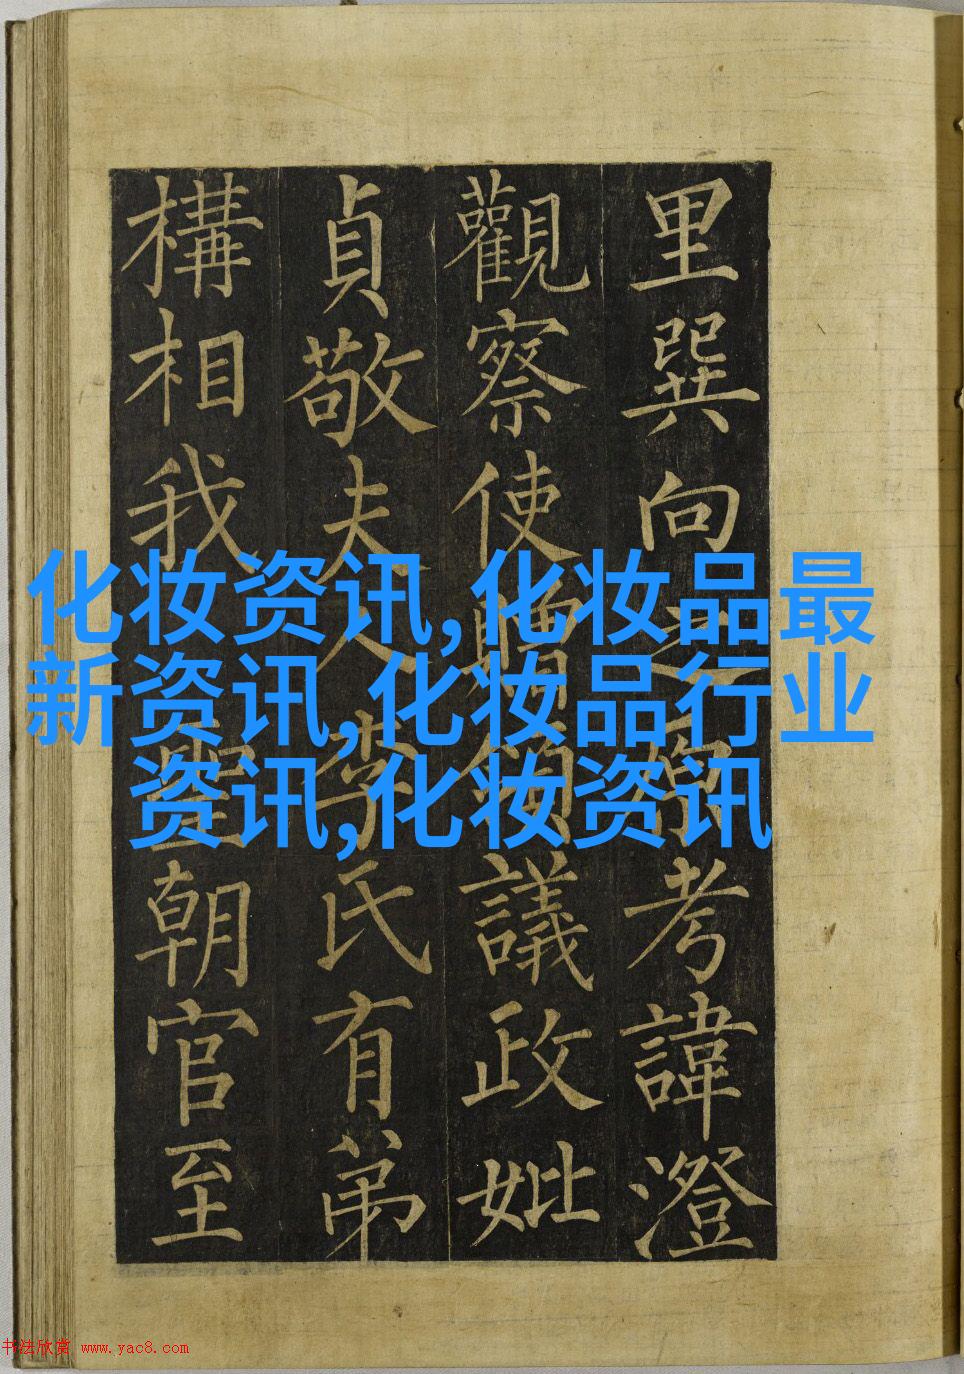 里巽向之考諱澄
觀察使贈領議政妣
貞敬夫人李氏有弟
構相我聖朝官至
化妆资讯,化妆品最
新资讯,化妆品行业
资讯,化妆资讯
书法欣赏 www.yac8.com